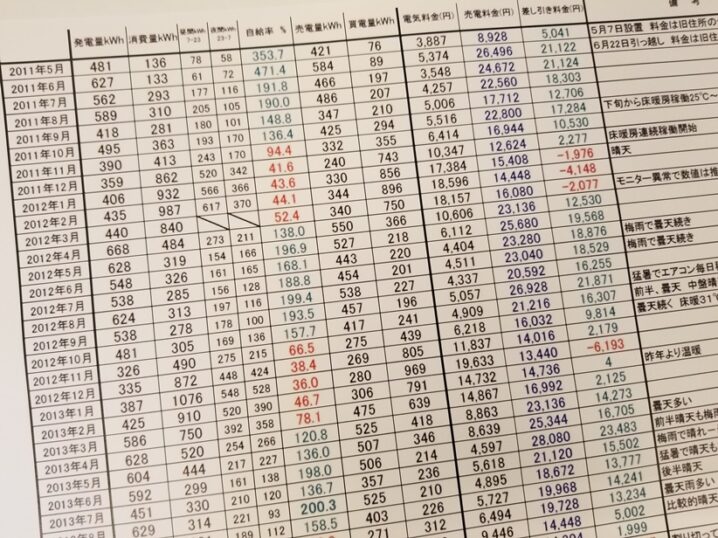 備 考
発電量kWh 消費量kWh 昼間kWh 7-23 夜間kWh 23-7 自給率 % 売電量kWh 買電量kWh 電気料金(円) 売電料金(円) 差し引き料金(円)
2011年5月 481 136 78 58 353.7 421 76 3,887 8,928 5,041 5月7日設置 料金は旧住所の
2011年6月 627 133 61 72 471.4 584 89 5,374 26,496 21,122 6月22日引っ越し 料金は旧
2011年7月 562 293 177 116 191.8 466 197 3,548 24,672 21,124
2011年8月 589 310 205 105 190.0 486 207 4,257 22,560 18,303
2011年9月 418 281 180 101 148.8 347 210 5,006 17,712 12,706
2011年10月 495 363 193 170 136.4 425 294 5,516 22,800 17,284 下旬から床暖房稼働25℃～
2011年11月 390 413 243 170 94.4 332 355 6,414 16,944 10,530
2011年12月 359 862 520 342 41.6 240 743 10,347 12,624 2,277 床暖房連続稼働開始
2012年1月 406 932 566 366 43.6 330 856 17,384 15,408 -1,976 晴天
2012年2月 435 987 617 370 44.1 344 896 18,596 14,448 -4,148
2012年3月 440 840 52.4 340 750 18,157 16,080 -2,077 モニター異常で数値は推
2012年4月 668 484 273 211 138.0 550 366 10,606 23,136 12,530
2012年5月 628 319 154 166 196.9 527 218 6,112 25,680 19,568
2012年6月 548 326 161 165 168.1 443 220 4,404 23,280 18,876 梅雨で曇天続き
2012年7月 538 285 156 128 188.8 454 201 4,511 23,040 18,529 梅雨で曇天続き
2012年8月 624 313 197 116 199.4 538 227 4,337 20,592 16,255
2012年9月 538 278 178 100 193.5 457 196 5,057 26,928 21,871 猛暑でエアコン毎日
2012年10月 481 305 169 136 157.7 417 241 4,909 21,216 16,307 前半、曇天 中盤晴
2012年11月 326 490 275 215 66.5 275 439 6,218 16,032 9,814 曇天続く 床暖31℃
2012年12月 335 872 448 424 38.4 269 805 11,837 14,016 2,179
2013年1月 387 1076 548 528 36.0 280 969 19,633 13,440 -6,193
2013年2月 425 910 520 390 46.7 306 791 14,732 14,736 4 昨年より温暖
2013年3月 586 750 392 358 78.1 475 639 14,867 16,992 2,125
2013年4月 628 520 254 266 120.8 525 418 8,863 23,136 14,273
2013年5月 604 444 217 227 136.0 507 346 8,639 25,344 16,705 曇天多い
2013年6月 592 299 161 138 198.0 506 214 4,597 28,080 23,483 前半晴天も梅雨
2013年7月 451 330 210 120 136.7 357 236 5,618 21,120 15,502 梅雨で晴れ
629 314 221 93 200.3 525 210 4,895 18,672 13,777 猛暑で晴天も
189 112 158.5 403 226 5,727 19,968 14,241 後半晴天
271 312 6,494 19,728 13,234 曇天雨多い
9,446 14,448 5,002 比較的晴天
1,999